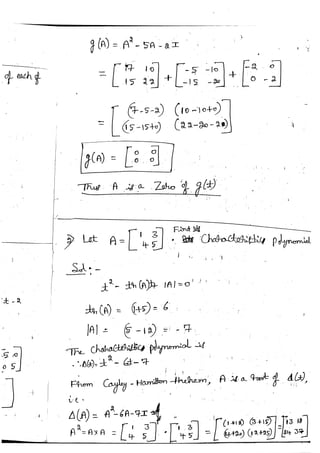 g(A) = A² - 5A - 2I
of each of
= [7 10 15 22] + [-5 -10 -15 -20] + [-2 0 0 -2]
= [(7-5-2) (10-10+0) (15-15+0) (22-20-2)]
g(A) = [0 0 0 0]
Thus A is a Zero of g(t)
3) Let A = [1 3 4 5] . Find its Characteristic polynomial
Sol: -
t² - tr(A)t + |A| = 0
t - 2
tr(A) = (1+5) = 6
|A| = (5 - 12) = - 7
The Characteristic polynomial is
5 0
∴ Δ(t) = t² - 6t - 7
0 5
From Cayley - Hamilton theorem, A is a root of Δ(t),
i.e.
Δ(A) = A² - 6A - 7I
A² = A x A = [1 3 4 5] . [1 3 4 5] = [(1+12) (3+15) (4+20) (12+25)] = [13 18 24 37]